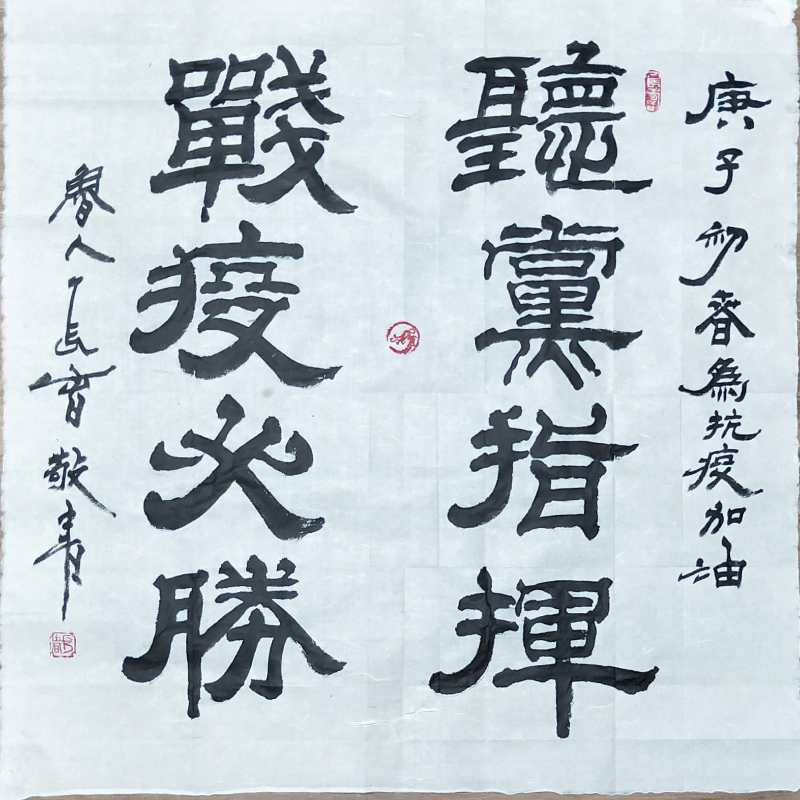 庚子初春為抗疫加油
聽黨指揮
戰疫必勝
魯人丁長賓敬書